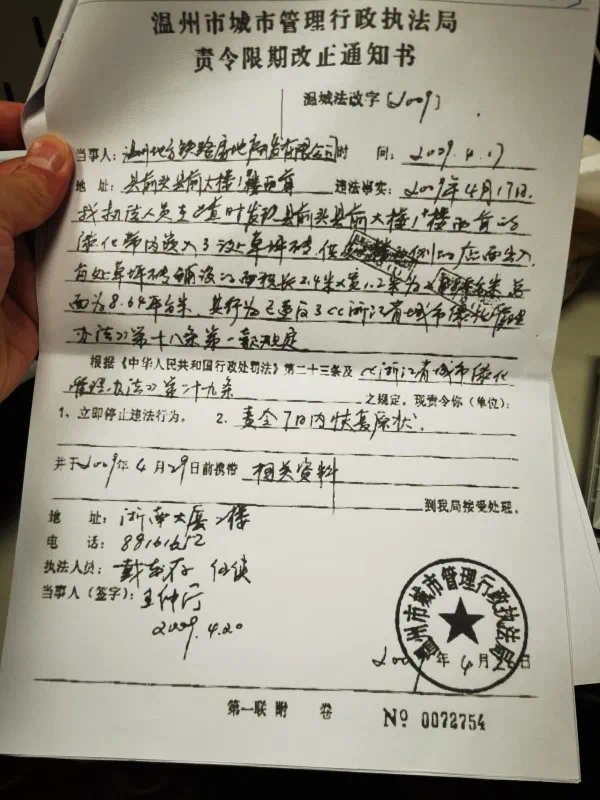 温州市城市管理行政执法局
责令限期改正通知书
温城法改字〔2009〕
当事人：温州地方铁路房地产开发有限公司 时 间：2009.4.17
地 址：县前头县前大楼1楼西首 违法事实：2009年4月17日.
我执法人员 发现县前头县前大楼1楼西首的
绿化带内嵌入了 草坪砖，供 店面出入
草坪砖铺设的面积长2.4米×宽1.2 总
面为8.64平方米，其行为已违反了《浙江省城市绿化管理
办法》第十八条第一款规定
根据《中华人民共和国行政处罚法》第二十三条及《浙江省城市绿化
管理办法》第二十九条 之规定，现责令你（单位）：
1、立即停止违法行为。 2、责令7日内恢复原状。
并于2009年4月29日前携带 相关资料
到我局接受处理。
地 址：浙南大厦2楼
电 话：88161652
执法人员：
当事人（签字）：王仲
2009.4.20
温州市城市管理行政执法局
2009年4月 日
第一联 附 卷 № 0072754